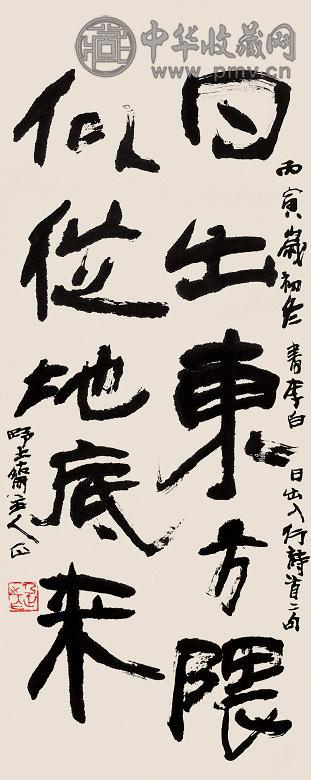 中华收藏网
www.pmv.cn
日出东方隈
似從地底来
丙寅歲初冬 書李白日出入行詩首二句